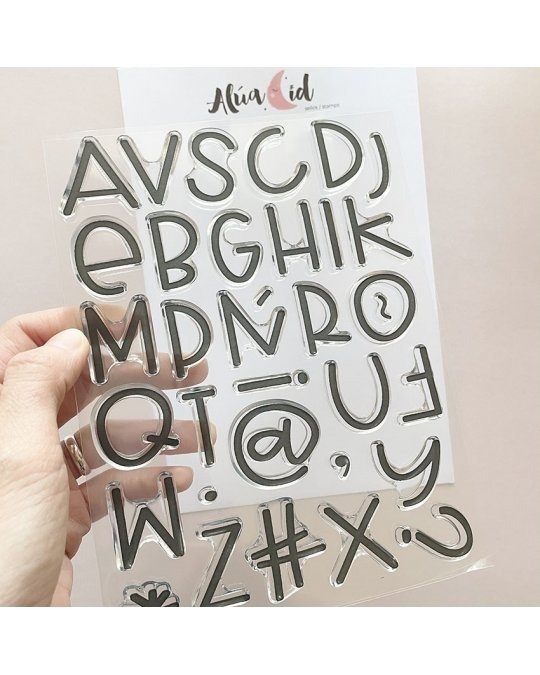 Alúa Cid
sellos / stamps
A V S C D J
e B G H I K
M P Ñ R O ~
Q T ! @ , U F
. W Z # X y ?
*